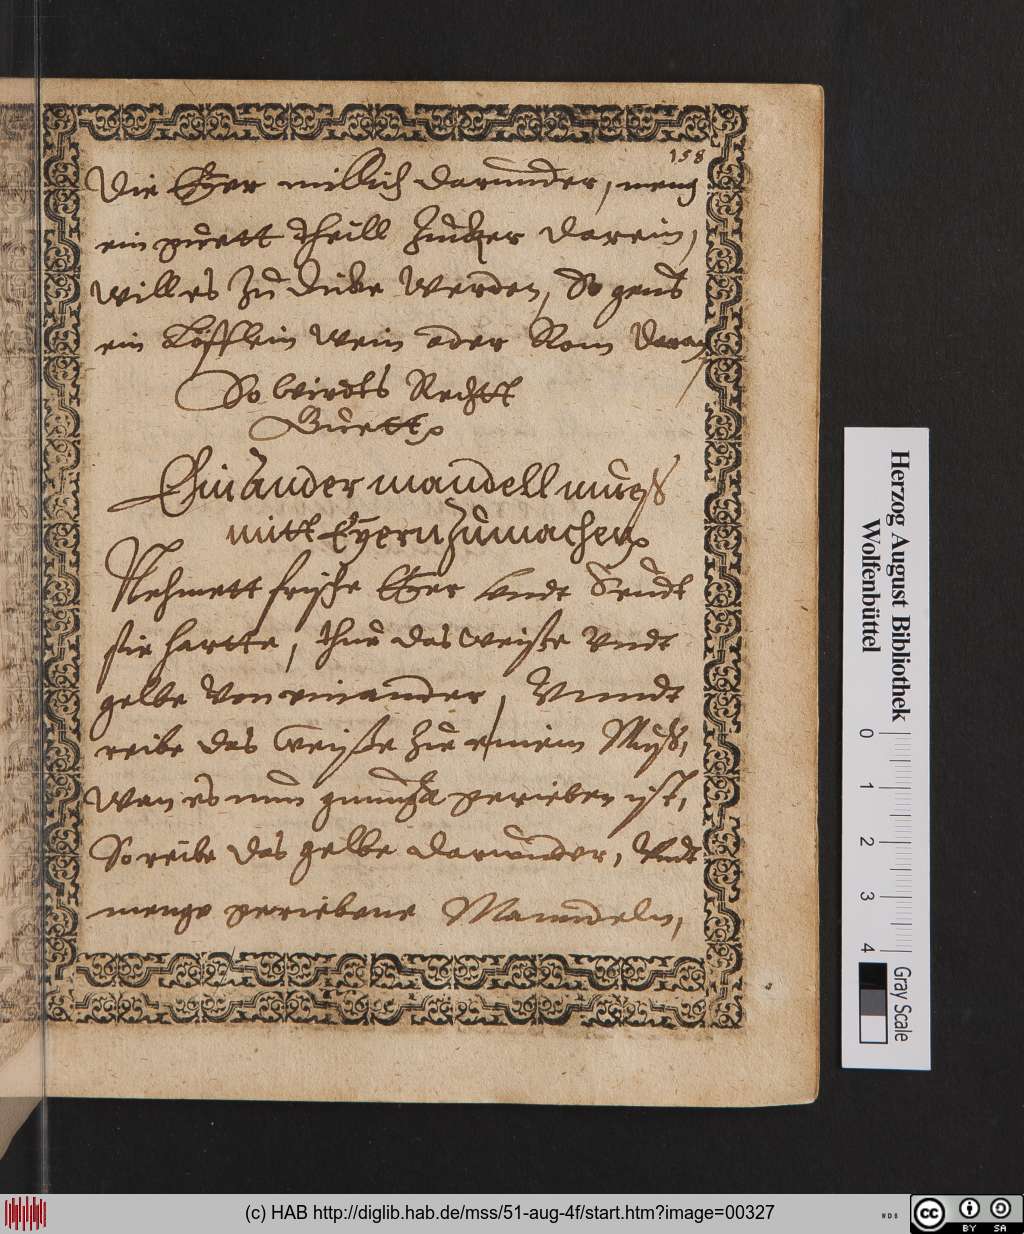 158
die Eyer millich darunder, meng
ein guett theill Zuker darein,
will es Zu dicke werden, So geust
ein Löfflein wein oder Rom
So wirdts Rechtt
Guett
Ein ander mandell mueß
mitt Eyern Zu machen
Nehmett frische Eyer Undt Seudt
sie hartte, thue das weiße Undt
gelbe Von einander, Vnndt
reibe das weyße Zue einem Muß,
wan es nun genug gerieben ist,
So reibe das gelbe darunder, Undt
menge geriebene Mandeln,
Herzog August Bibliothek
Wolfenbüttel
0 1 2 3 4
Gray Scale
(c) HAB http://diglib.hab.de/mss/51-aug-4f/start.htm?image=00327
WDB
cc BY SA